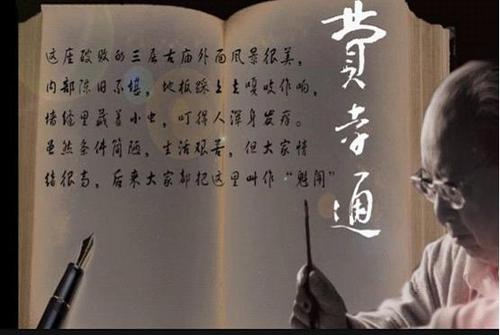 这座破败的三层古庙外面风景很美，
内部陈旧不堪，地板踩上去嘎吱作响，
墙缝里藏着小虫，叮得人浑身发痒。
虽然条件简陋，生活艰苦，但大家情
绪很高，后来大家都把这里叫作“魁阁”
费孝通